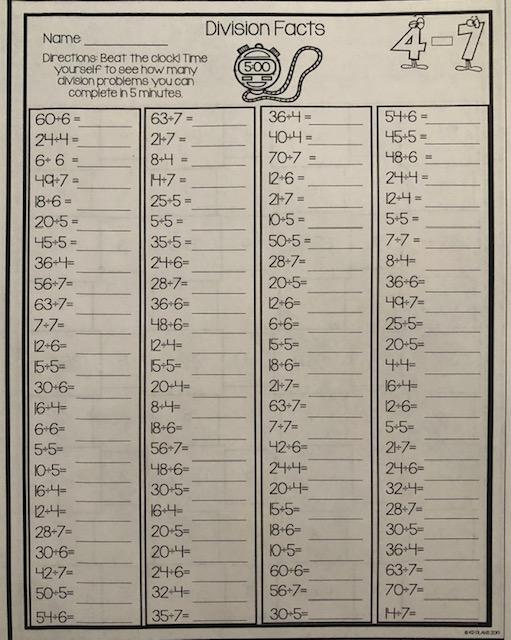 Division Facts
Name
4-7
Directions: Beat the clock! Time
yourself to see how many
division problems you can
complete in 5 minutes.
5:00
60÷6 =
24÷4 =
6÷ 6 =
49÷7 =
18÷6 =
20÷5 =
45÷5 =
36÷4=
56÷7=
63÷7=
7÷7=
12÷6=
15÷5=
30÷6=
16÷4=
6÷6=
5÷5=
10÷5=
16÷4=
12÷4=
28÷7=
30÷6=
42÷7=
50÷5=
54÷6=
63÷7 =
21÷7 =
8÷4 =
14÷7 =
25÷5 =
5÷5 =
35÷5 =
24÷6=
28÷7=
36÷6=
48÷6=
12÷4=
15÷5=
20÷4=
8÷4=
18÷6=
56÷7=
48÷6=
30÷5=
16÷4=
20÷5=
20÷4=
24÷6=
32÷4=
35÷7=
36÷4 =
40÷4 =
70÷7 =
12÷6 =
21÷7 =
10÷5 =
50÷5 =
28÷7=
20÷5=
12÷6=
6÷6=
15÷5=
18÷6=
21÷7=
63÷7=
7÷7=
42÷6=
24÷4=
20÷4=
15÷5=
18÷6=
10÷5=
60÷6=
56÷7=
30÷5=
54÷6 =
45÷5 =
48÷6 =
24÷4 =
12÷4 =
5÷5 =
7÷7 =
8÷4=
36÷6=
49÷7=
25÷5=
20÷5=
4÷4=
16÷4=
12÷6=
5÷5=
21÷7=
24÷6=
32÷4=
28÷7=
30÷5=
36÷4=
63÷7=
70÷7=
14÷7=